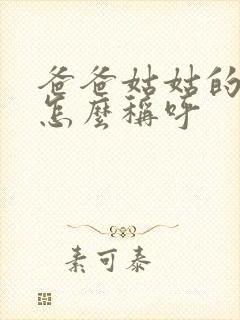 爸爸姑姑的
怎麼稱呼
素可泰